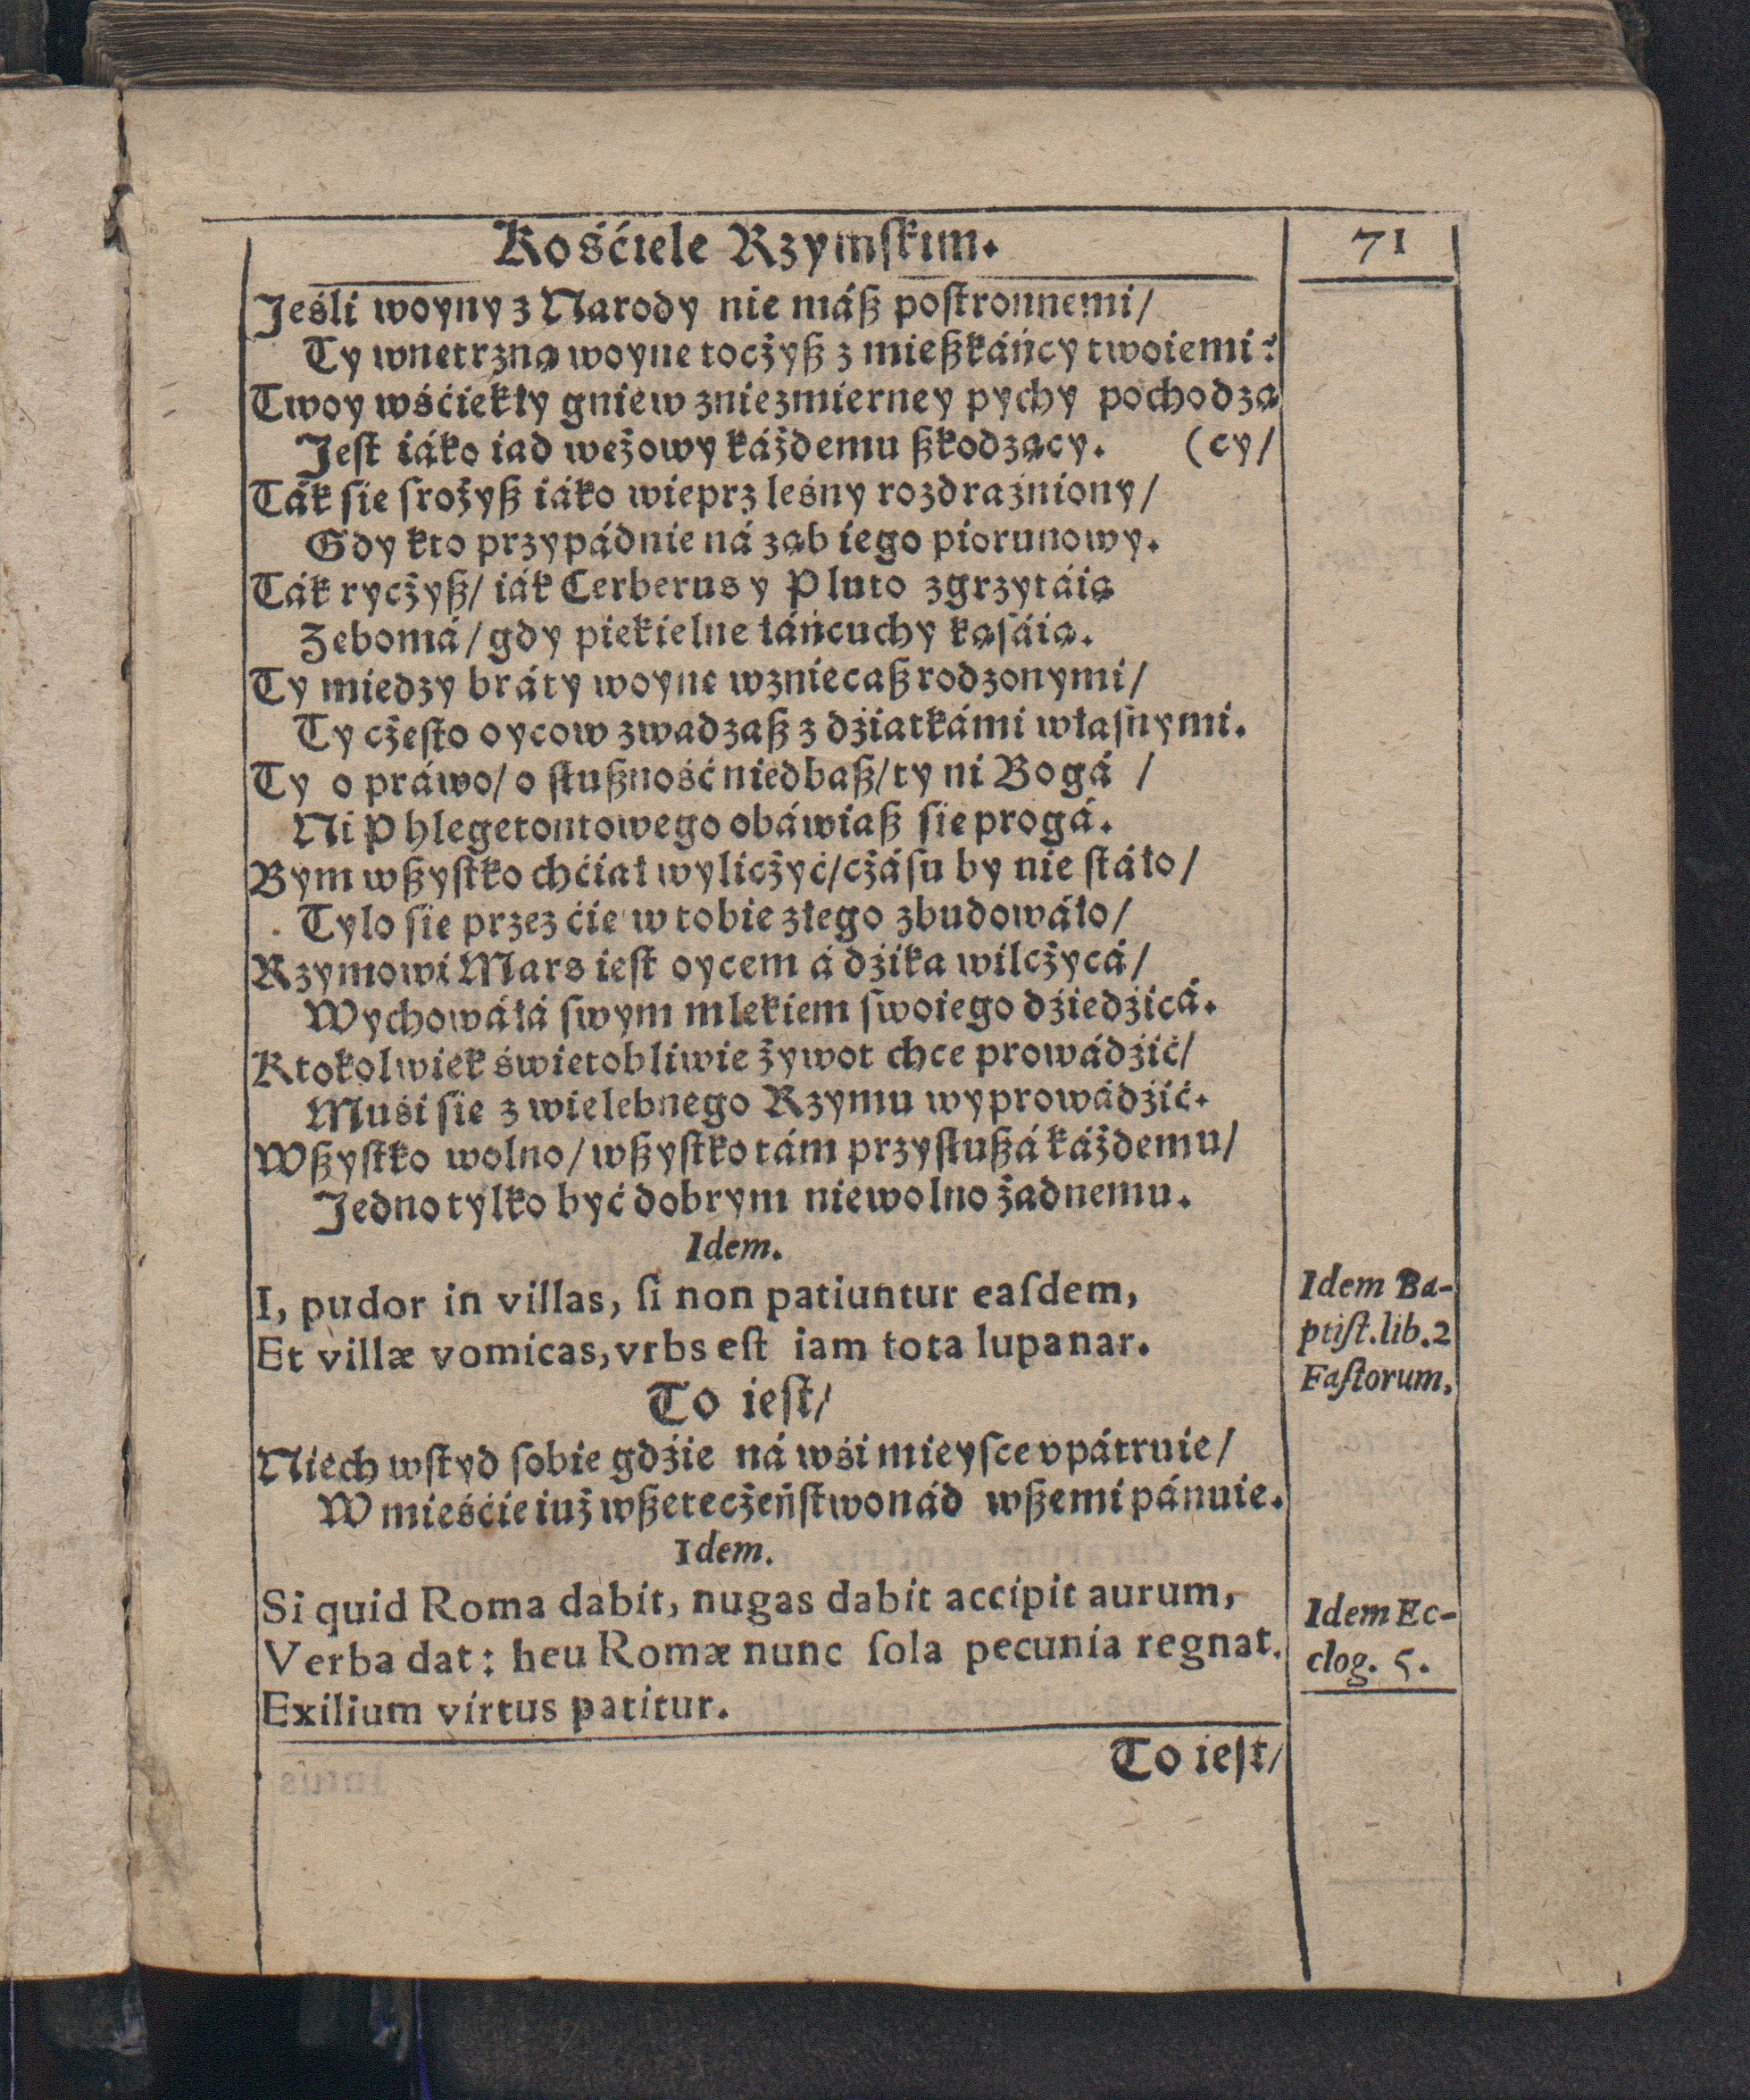 Kośćiele Rzymſkim.
71
Jeśli woyny z Narody nie máß poſtronnemi/
Ty wnetrzną woyne toczyß z mießkáńcy twoiemi:
Twoy wśćiekły gniew zniezmierney pychy pochodzą
Jeſt iáko iad wężowy káżdemu ßkodzący. (cy/
Ták ſie ſrożyß iáko wieprz leśny rozdrażniony/
Gdy kto przypádnie ná ząb iego piorunowy.
Ták ryczyß/ iák Cerberus y Pluto zgrzytáią
Zebomá/ gdy piekielne łáńcuchy kąſáią.
Ty miedzy bráty woyne wzniecaß rodzonymi/
Ty częſto oycow zwadzaß z dźiatkámi właſnymi.
Ty o práwo/ o ſłußność niedbaß/ ty ni Bogá /
Ni Phlegetontowego obáwiaß ſie progá.
Bym wßyſtko chćiał wyliczyć/ czáſu by nie ſtáło/
Tylo ſie przez ćie w tobie złego zbudowáło/
Rzymowi Mars ieſt oycem á dźika wilczycá/
Wychowáłá ſwym mlekiem ſwoiego dźiedźicá.
Ktokolwiek świetobliwie żywot chce prowádźić/
Muśi ſie z wielebnego Rzymu wyprowádźić.
Wßyſtko wolno/ wßyſtko tám przyſłußá káżdemu/
Jedno tylko być dobrym niewolno żadnemu.
Idem.
I, pudor in villas, ſi non patiuntur eaſdem,
Et villæ vomicas, vrbs eſt iam tota lupanar.
Idem Ba-
ptiſt. lib. 2
Faſtorum.
To ieſt/
Niech wſtyd ſobie gdźie ná wśi mieyſce vpátruie/
W mieśćie iuż wßeteczeńſtwo nád wßemi pánuie.
Idem.
Si quid Roma dabit, nugas dabit accipit aurum,
Verba dat: heu Romæ nunc ſola pecunia regnat.
Exilium virtus patitur.
Idem Ec-
clog. 5.
To ieſt/